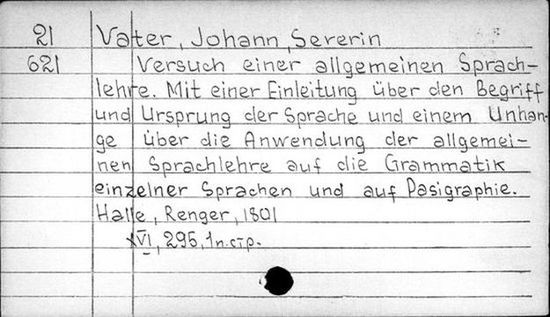 21 Vater, Johann Sererin
621 Versuch einer allgemeinen Sprach-
lehre. Mit einer Einleitung über den Begriff
und Ursprung der Sprache und einem Unhan-
ge über die Anwendung der allgemei-
nen Sprachlehre auf die Grammatik
einzelner Sprachen und auf Pasigraphie.
Halle, Renger, 1801
XVI, 296, 1 п. стр.